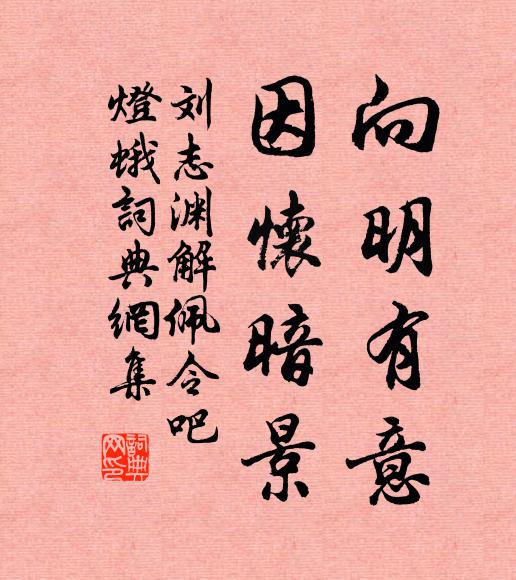 向明有意
因懷暗景
刘志渊解佩令吧
燈蛾詞典網集
詞典
网印